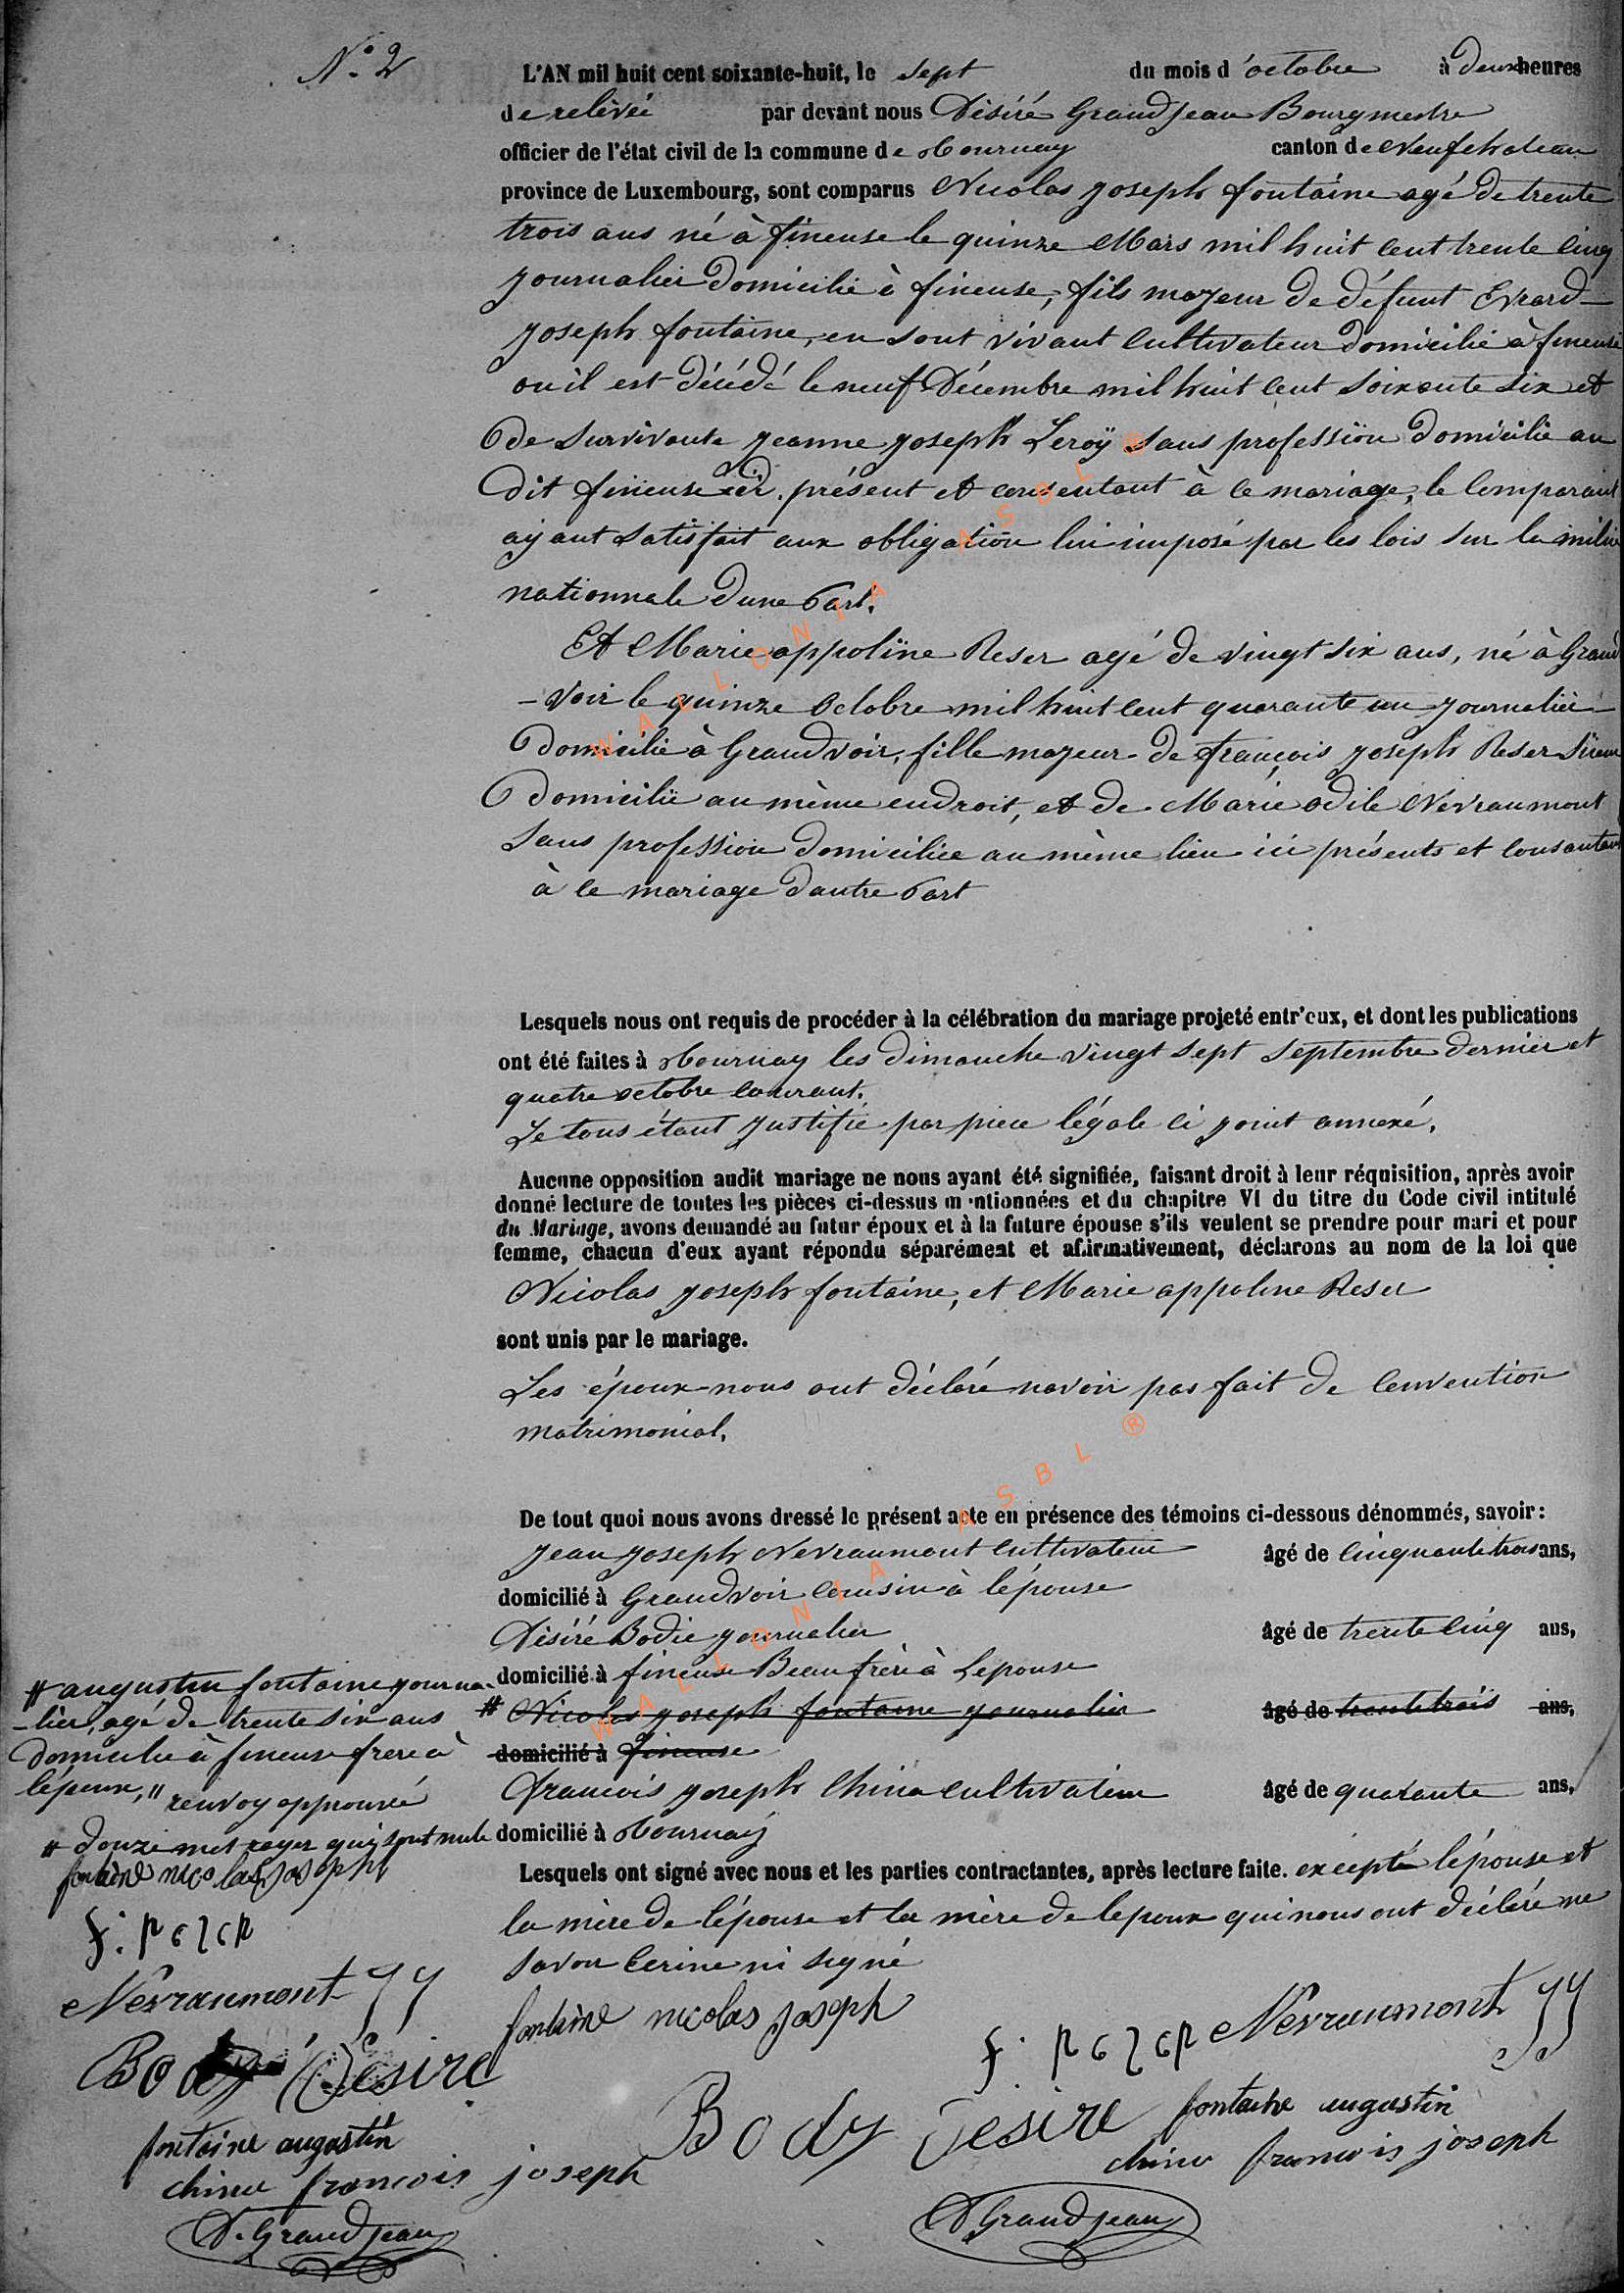 N° 2
L'AN mil huit cent soixante-huit, le sept du mois d'octobre à deux heures
de relévée par devant nous Désiré Grandjean Bourgmestre
officier de l'état civil de la commune de Tournay canton de Neufchateau
province de Luxembourg, sont comparus Nicolas joseph fontaine agé de trente
trois ans né à fineuse le quinze Mars mil huit cent trente cinq
journalier domicilié à fineuse, fils majeur de défunt Evrard
joseph fontaine, en sont vivant cultivateur domicilié à fineuse
ou il est décédé le neuf Décembre mil huit cent soixante six et
de survivante jeanne joseph Leroÿ sans profession domicilié au
dit fineuse présent et consentant à ce mariage, le comparant
ayant satisfait aux obligation lui imposé par les lois sur la milice
nationnale dune Part.
Et Marie appoline Reser agé de vingt six ans, né à Grand
-voir le quinze octobre mil huit cent quarante un journalier
domicilié à Grandvoir, fille majeur de françois joseph Reser
domicilié au mème endroit, et de Marie odile Nevraumont
sans profession domiciliée au mème lieu ici présents et consantant
à ce mariage dautre Part
Lesquels nous ont requis de procéder à la célébration du mariage projeté entr'eux, et dont les publications
ont été faites à Tournay les dimanche vingt sept septembre dernier et
quatre octobre courant.
Le tous étant justifié par piece légale ci joint annexé.
Aucune opposition audit mariage ne nous ayant été signifiée, faisant droit à leur réquisition, après avoir
donné lecture de toutes les pièces ci-dessus mentionnées et du chapitre VI du titre du Code civil intitulé
du Mariage, avons demandé au futur époux et à la future épouse s'ils veulent se prendre pour mari et pour
femme, chacun d'eux ayant répondu séparément et affirmativement, déclarons au nom de la loi que
Nicolas joseph fontaine, et Marie appoline Reser
sont unis par le mariage.
Les époux nous ont déclaré navoir pas fait de convention
matrimonial.
De tout quoi nous avons dressé le présent acte en présence des témoins ci-dessous dénommés, savoir :
jean joseph Nevraumont cultivateur âgé de cinquante trois ans,
domicilié à Grandvoir cousin à lépouse
Désiré Bodie journalier âgé de trente cinq ans,
domicilié à fineuse Beau frère à Lepouse
# Nicolas joseph fontaine journalier âgé de trente trois ans,
domicilié à fineuse
francois joseph China cultivateur âgé de quarante ans,
domicilié à Tournay
Lesquels ont signé avec nous et les parties contractantes, après lecture faite. excepté lépouse et
la mère de lépouse et la mère de lepoux qui nous ont déclaré ne
savoir ni signé
# augustin fontaine journa-
-lier, agé de trente six ans
domicilié à fineuse frere à
lépoux, " renvoy approuvé
# douze mot rayer qui sont nule
fontaine nicolas joseph
f: Rezer
Nevraumont JJ
Body Désiré
fontaine augustin
chinu francois joseph
D. Grandjean
fontaine nicolas joseph
f. Rezer Nevraumont JJ
Body Desiré fontaine augustin
chinu francois joseph
D Grandjean
WALLONIA ASBL ®
WALLONIA ASBL ®